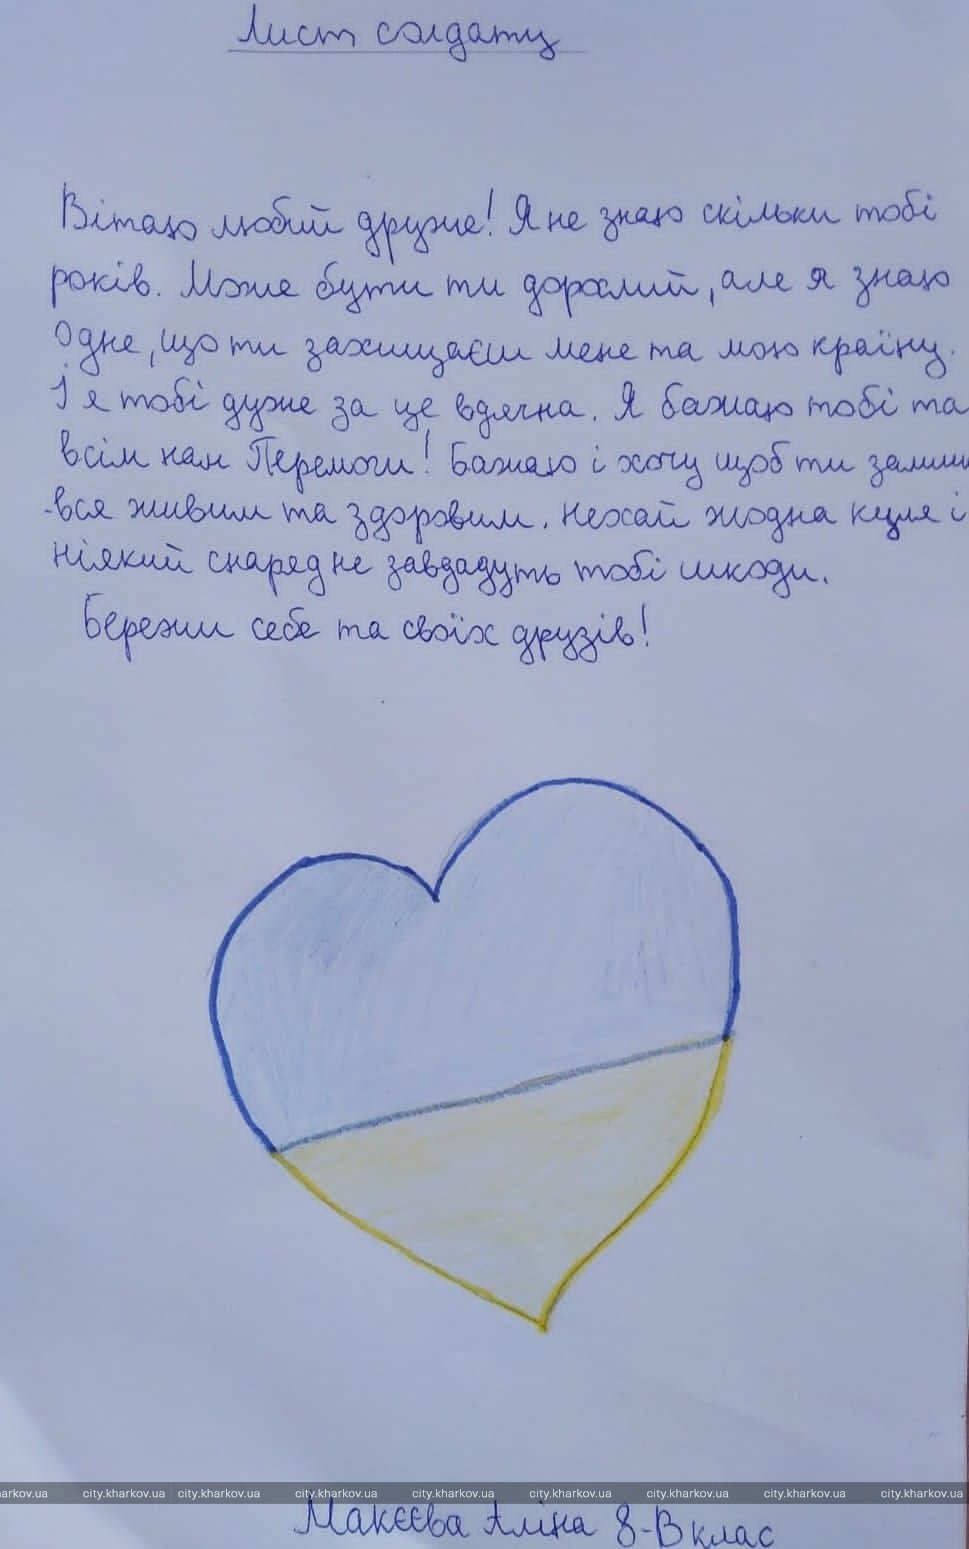 Лист солдату
Вітаю любий друже! Я не знаю скільки тобі
років. Може бути ти дорослий, але я знаю
одне, що ти захищаєш мене та мою країну.
І я тобі дуже за це вдячна. Я бажаю тобі та
всім нам Перемоги! Бажаю і хочу щоб ти залиши
-вся живим та здоровим. Нехай жодна куля і
ніякий снаряд не завдадуть тобі шкоди.
Бережи себе та своїх друзів!
arkov.ua city.kharkov.ua city.kharkov.ua city.kharkov.ua city.kharkov.ua city.kharkov.ua city.kharkov.ua city.kharkov.ua city.kharkov.ua
Макєєва Аліна 8-В клас